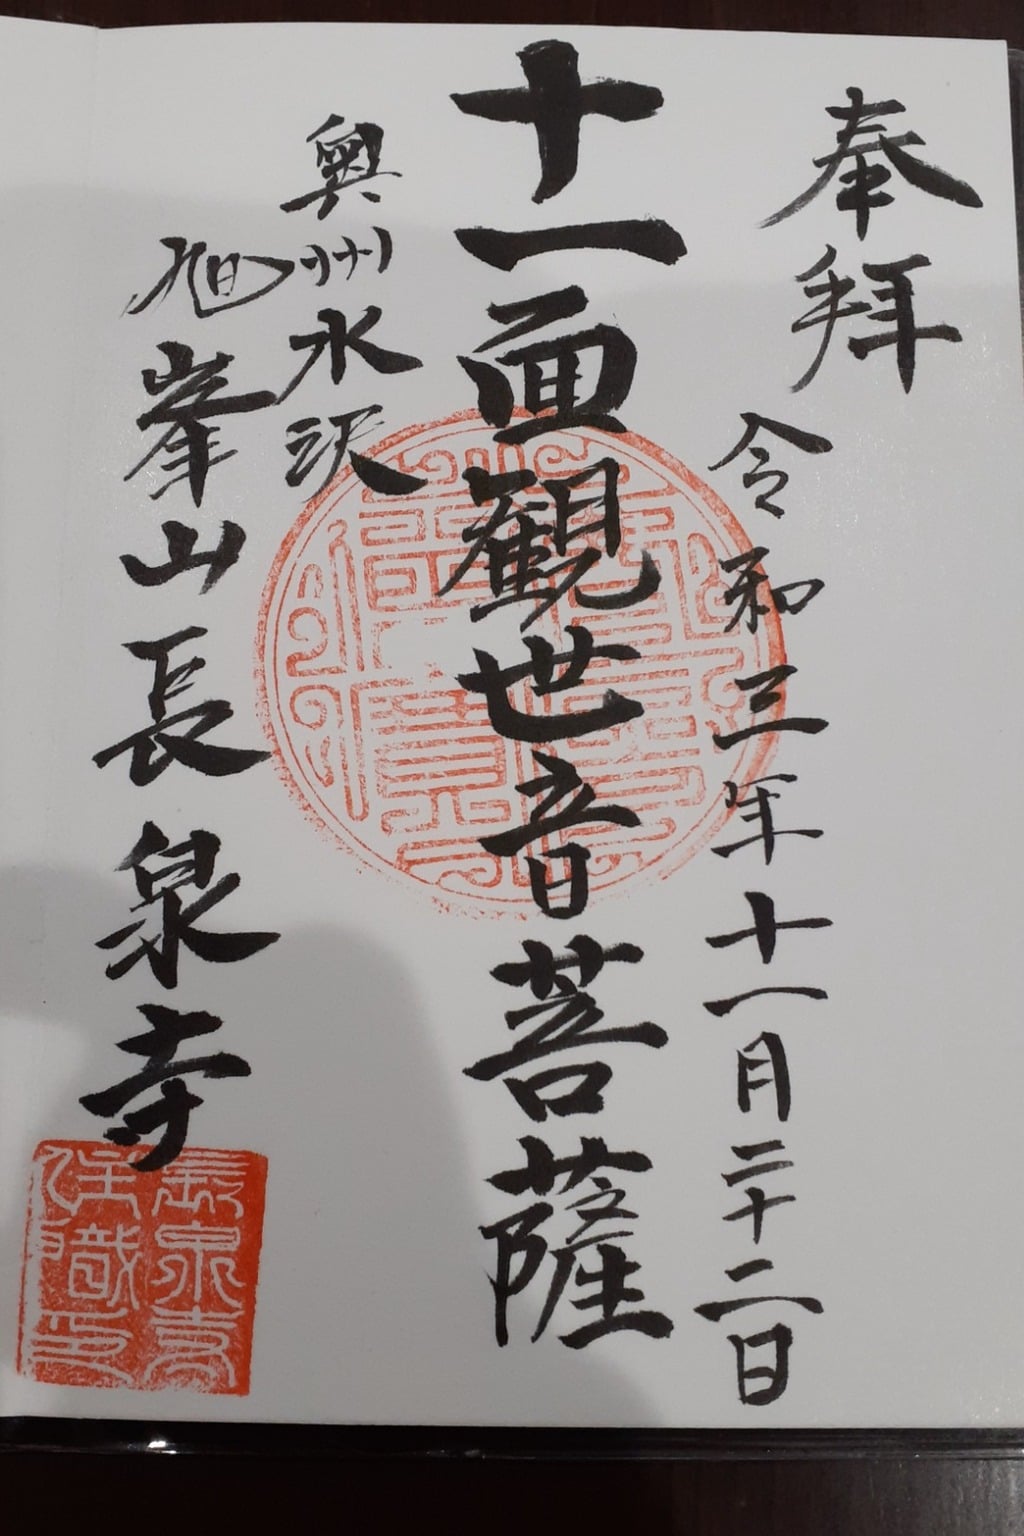 奉拝
令和三年十一月二十二日
十一面観世音菩薩
奥州水沢
旭峯山長泉寺
長泉寺
住職印